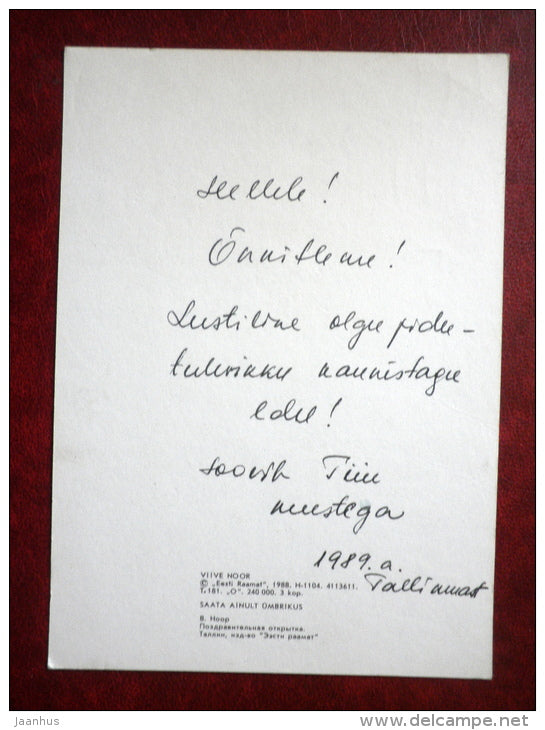 Õnnitleme!
Lustiline olgu pidu-
tulevikku kaunistagu
edu!
soovib Tiiu
mustega
1989.a.
Tallinnast
VIIVE NOOR
© „Eesti Raamat", 1988. H-1104. 4113611.
T. 181. „O". 240 000. 3 kop.
SAATA AINULT ÜMBRIKUS
В. Ноор
Поздравительная открытка.
Таллин, изд-во "Ээсти раамат"
© jaanhus
www.delcampe.net